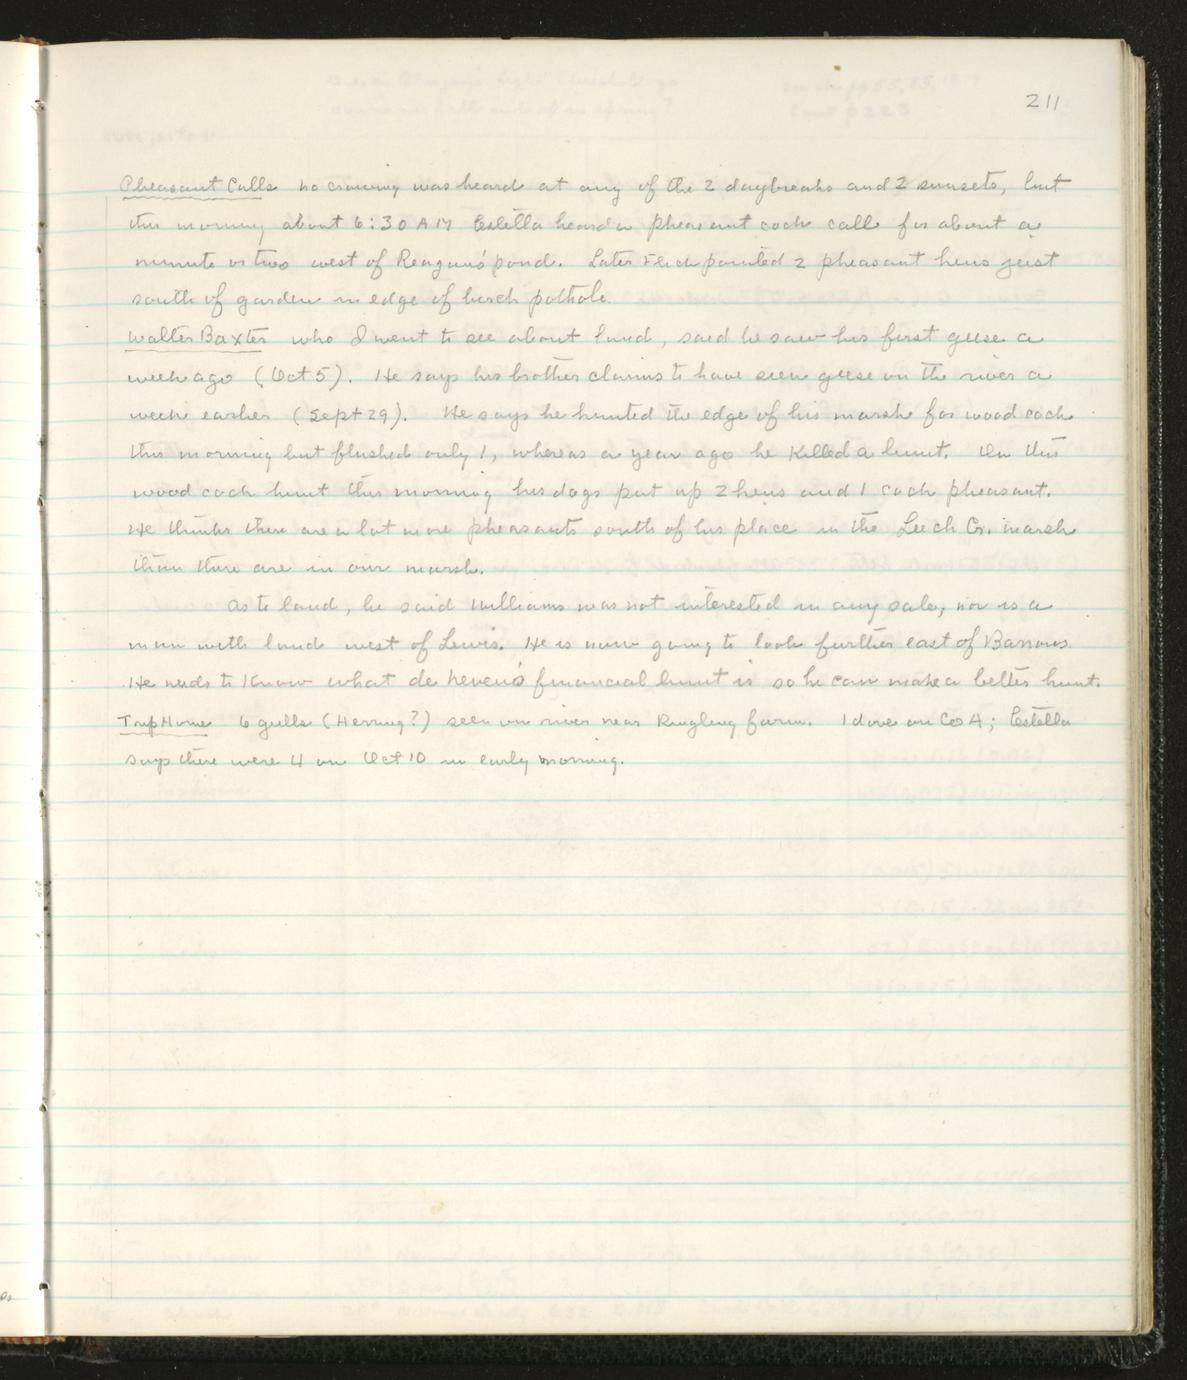 211
Pheasant Calls no crowing was heard at any of the 2 daybreaks and 2 sunsets, but
this morning about 6:30 AM Estella heard a pheasant cock call for about a
minute or two west of Reagan's pond. Later Flick pointed 2 pheasant hens just
south of garden in edge of birch pothole
Walter Baxter who I went to see about land, said he saw his first geese a
week ago (Oct 5). He says his brother claims to have seen geese on the river a
week earlier (Sept 29). He says he hunted the edge of his marsh for wood cock
this morning but flushed only 1, whereas a year ago he killed a limit. On this
wood cock hunt this morning his dogs put up 2 hens and 1 cock pheasant.
He thinks there are a lot more pheasants south of his place in the Leech Cr. marsh
than there are in our marsh.
As to land, he said Williams was not interested in any sale, nor is a
man with land west of Lewis. He is now going to look further east of Barrows
He needs to know what de neven's financial limit is so he can make a better hunt.
Trip Home 6 gulls (Herring?) seen on river near Ringling farm. 1 dove on Co A; Estella
says there were 4 on Oct 10 in early morning.